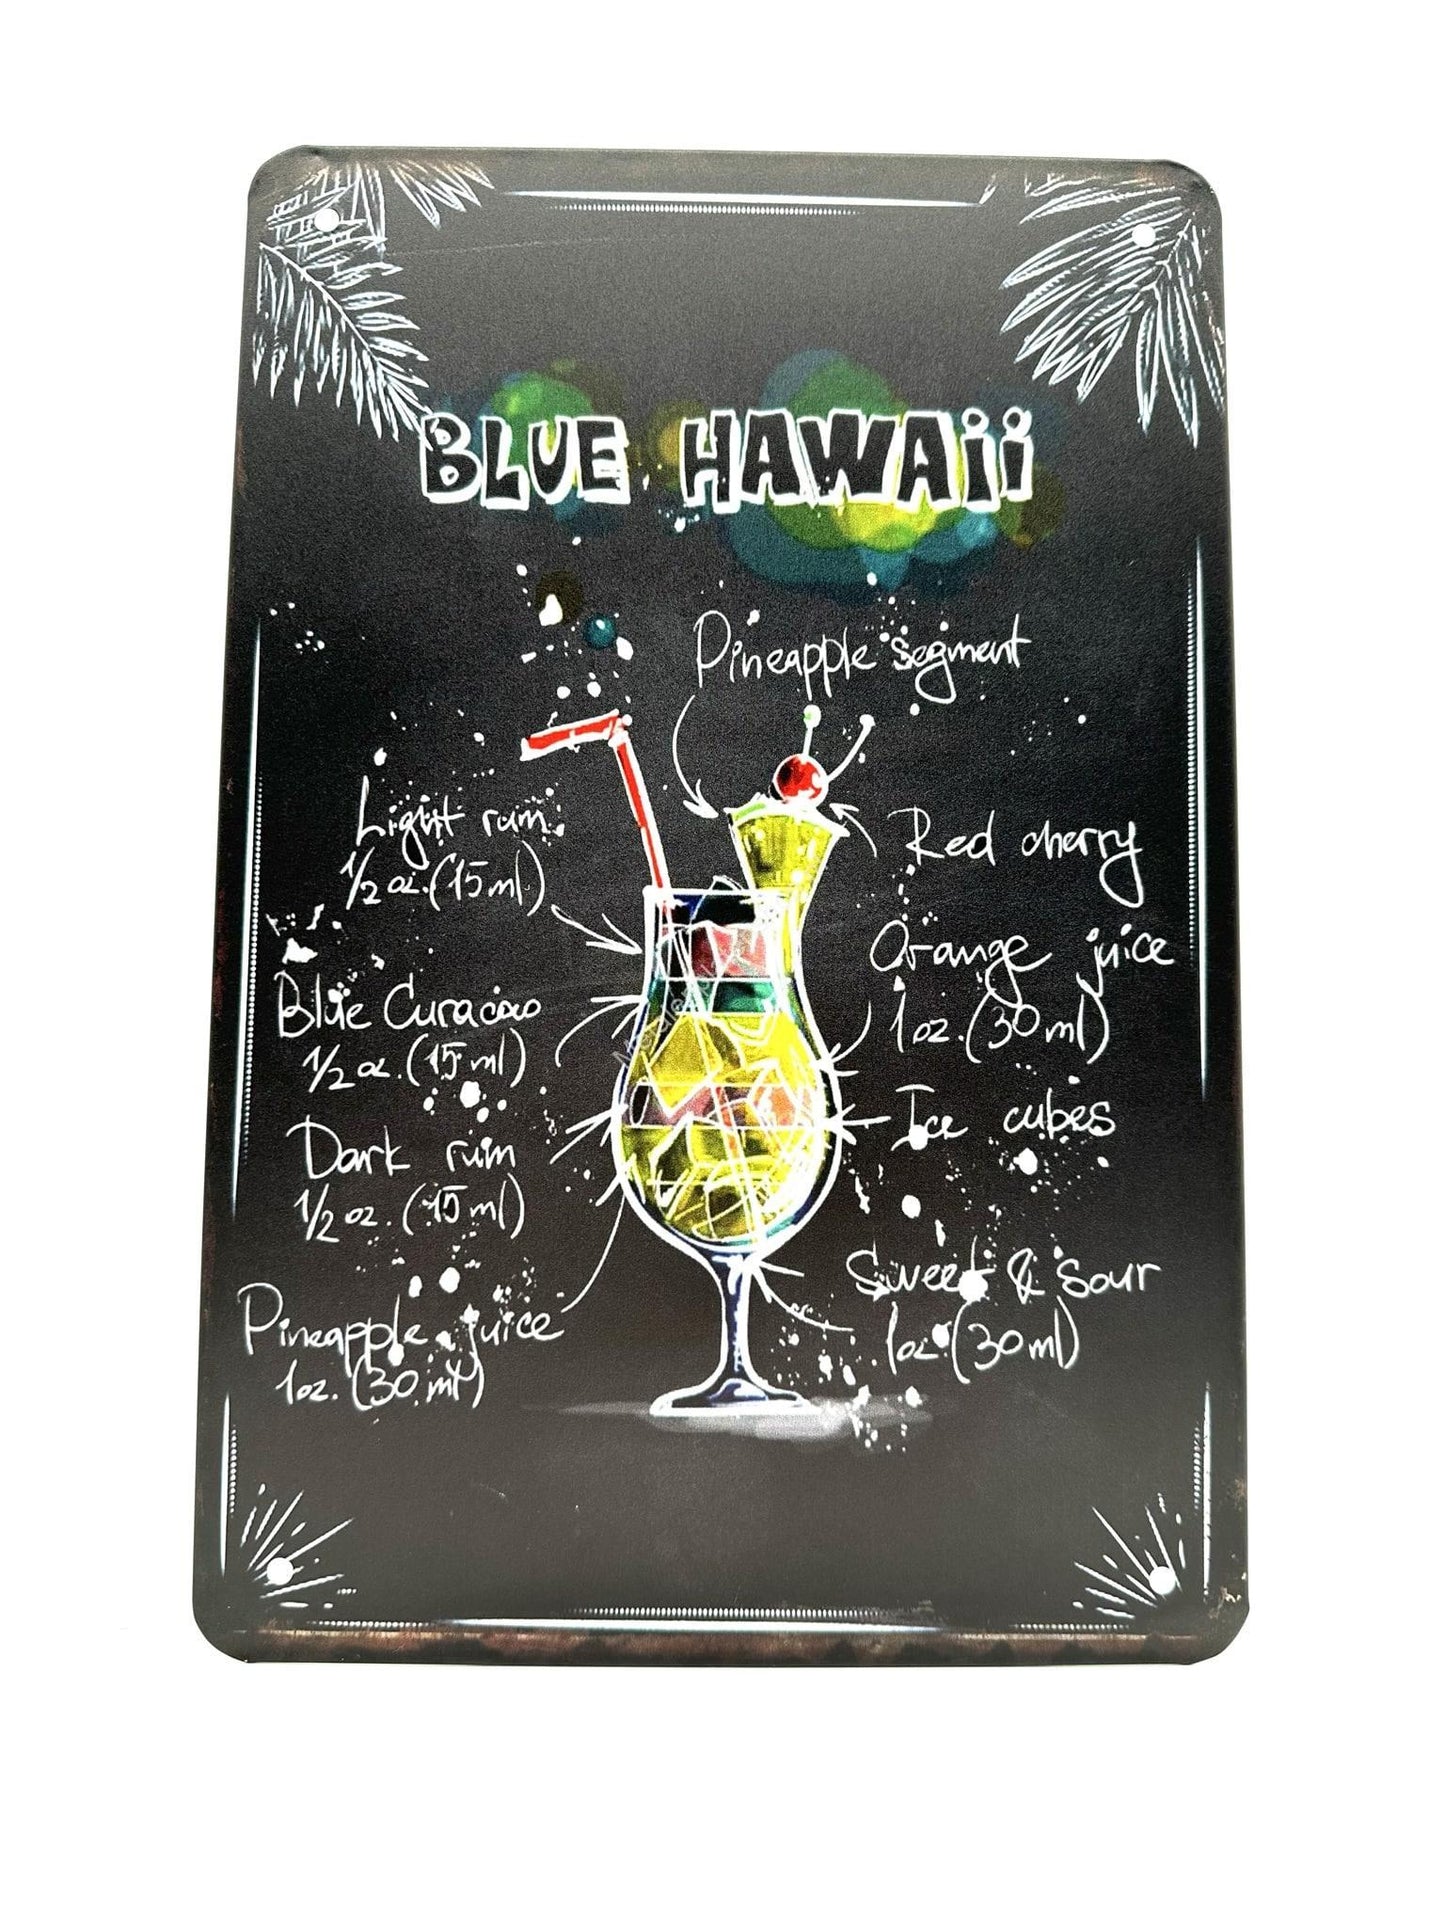 BLUE HAWAii
Pineapple segment
Light rum
1/2 oz. (15 ml)
Red cherry
Orange juice
1 oz. (30 ml)
Blue Curacao
1/2 oz. (15 ml)
Ice cubes
Dark rum
1/2 oz. (15 ml)
Sweet & Sour
1oz. (30 ml)
Pineapple juice
1oz. (30 ml)